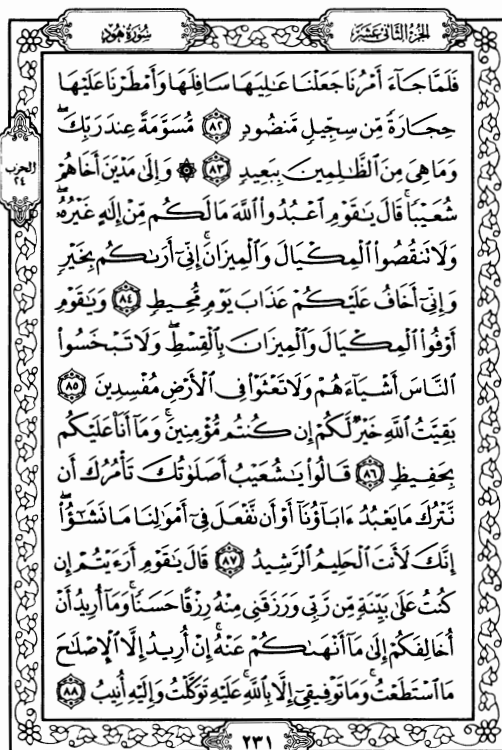 الجزء الثاني عشر
سورة هود
فَلَمَّا جَآءَ أَمْرُنَا جَعَلْنَا عَـٰلِيَهَا سَافِلَهَا وَأَمْطَرْنَا عَلَيْهَا
حِجَارَةً مِّن سِجِّيلٍ مَّنضُودٍ ۝٨٢ مُّسَوَّمَةً عِندَ رَبِّكَۖ
وَمَا هِىَ مِنَ ٱلظَّـٰلِمِينَ بِبَعِيدٍ ۝٨٣ ۞ وَإِلَىٰ مَدْيَنَ أَخَاهُمْ
الحزب
٢٤
شُعَيْبًاۚ قَالَ يَـٰقَوْمِ ٱعْبُدُوا۟ ٱللَّهَ مَا لَكُم مِّنْ إِلَـٰهٍ غَيْرُهُۥۖ
وَلَا تَنقُصُوا۟ ٱلْمِكْيَالَ وَٱلْمِيزَانَۚ إِنِّىٓ أَرَىٰكُم بِخَيْرٍ
وَإِنِّىٓ أَخَافُ عَلَيْكُمْ عَذَابَ يَوْمٍ مُّحِيطٍ ۝٨٤ وَيَـٰقَوْمِ
أَوْفُوا۟ ٱلْمِكْيَالَ وَٱلْمِيزَانَ بِٱلْقِسْطِۖ وَلَا تَبْخَسُوا۟
ٱلنَّاسَ أَشْيَآءَهُمْ وَلَا تَعْثَوْا۟ فِى ٱلْأَرْضِ مُفْسِدِينَ ۝٨٥
بَقِيَّتُ ٱللَّهِ خَيْرٌ لَّكُمْ إِن كُنتُم مُّؤْمِنِينَۚ وَمَآ أَنَا۠ عَلَيْكُم
بِحَفِيظٍ ۝٨٦ قَالُوا۟ يَـٰشُعَيْبُ أَصَلَوٰتُكَ تَأْمُرُكَ أَن
نَّتْرُكَ مَا يَعْبُدُ ءَابَآؤُنَآ أَوْ أَن نَّفْعَلَ فِىٓ أَمْوَٰلِنَا مَا نَشَـٰٓؤُا۟ۖ
إِنَّكَ لَأَنتَ ٱلْحَلِيمُ ٱلرَّشِيدُ ۝٨٧ قَالَ يَـٰقَوْمِ أَرَءَيْتُمْ إِن
كُنتُ عَلَىٰ بَيِّنَةٍ مِّن رَّبِّى وَرَزَقَنِى مِنْهُ رِزْقًا حَسَنًاۚ وَمَآ أُرِيدُ أَنْ
أُخَالِفَكُمْ إِلَىٰ مَآ أَنْهَىٰكُمْ عَنْهُۚ إِنْ أُرِيدُ إِلَّا ٱلْإِصْلَـٰحَ
مَا ٱسْتَطَعْتُۚ وَمَا تَوْفِيقِىٓ إِلَّا بِٱللَّهِۚ عَلَيْهِ تَوَكَّلْتُ وَإِلَيْهِ أُنِيبُ ۝٨٨
٢٣١